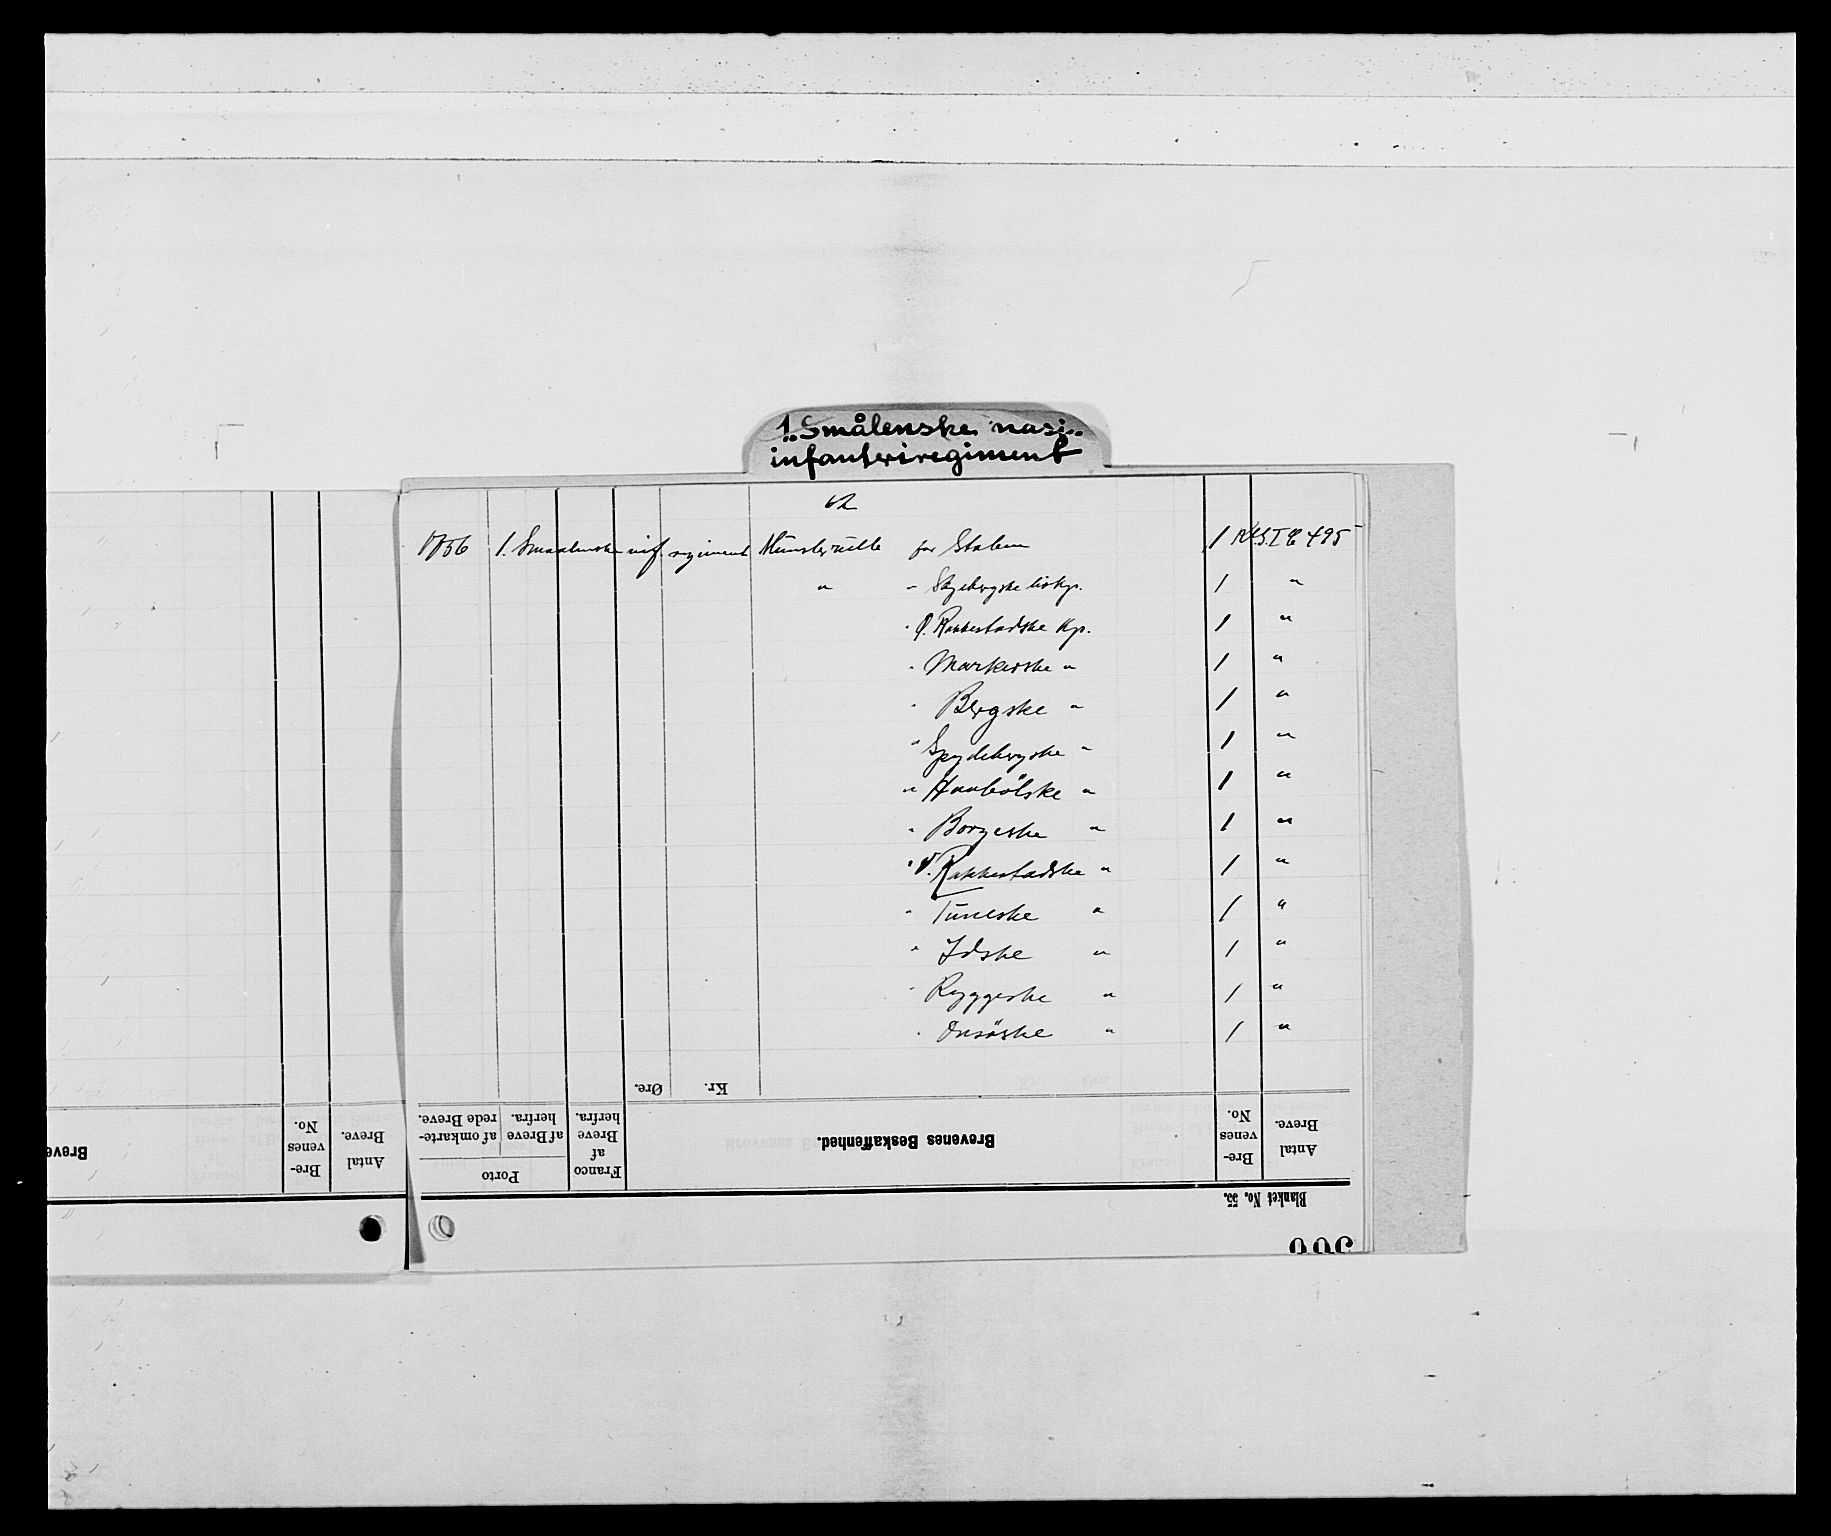 1. Smålenske nasj.
infanteriregiment
1756 1. Smaalenske inf. regiment Münsterrulle for Staben 1 495
" " Skjebergske livkp. 1 "
" Ø. Rakkestadske Kp. 1 "
" Markerske " 1 "
" Bergske " 1 "
" Spydebergske " 1 "
" Haabölske " 1 "
" Borgeske " 1 "
" V. Rakkestadske " 1 "
" Tuneske " 1 "
" Idske " 1 "
" Ryggeske " 1 "
" Onsöske " 1 "
Blanket No. 55.
Antal Breve.
Brevenes No.
Brevenes Beskaffenhed.
Kr.
Øre.
Franco af Breve herfra.
Porto
af Breve herfra.
af omkarterede Breve.
Antal Breve.
Brevenes No.
Breve